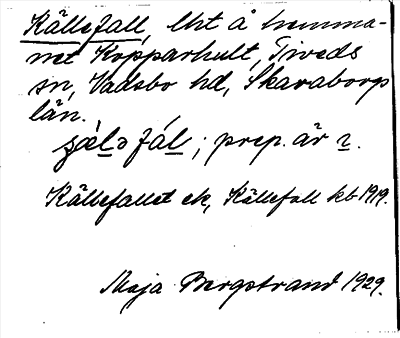 Källefall, lht å hemma-
net Kopparhult, Tiveds
sn, Vadsbo hd, Skaraborgs
län.
; prep. är
Källefallet ek, Källefall kb 1919.
Maja Bergstrand 1929.